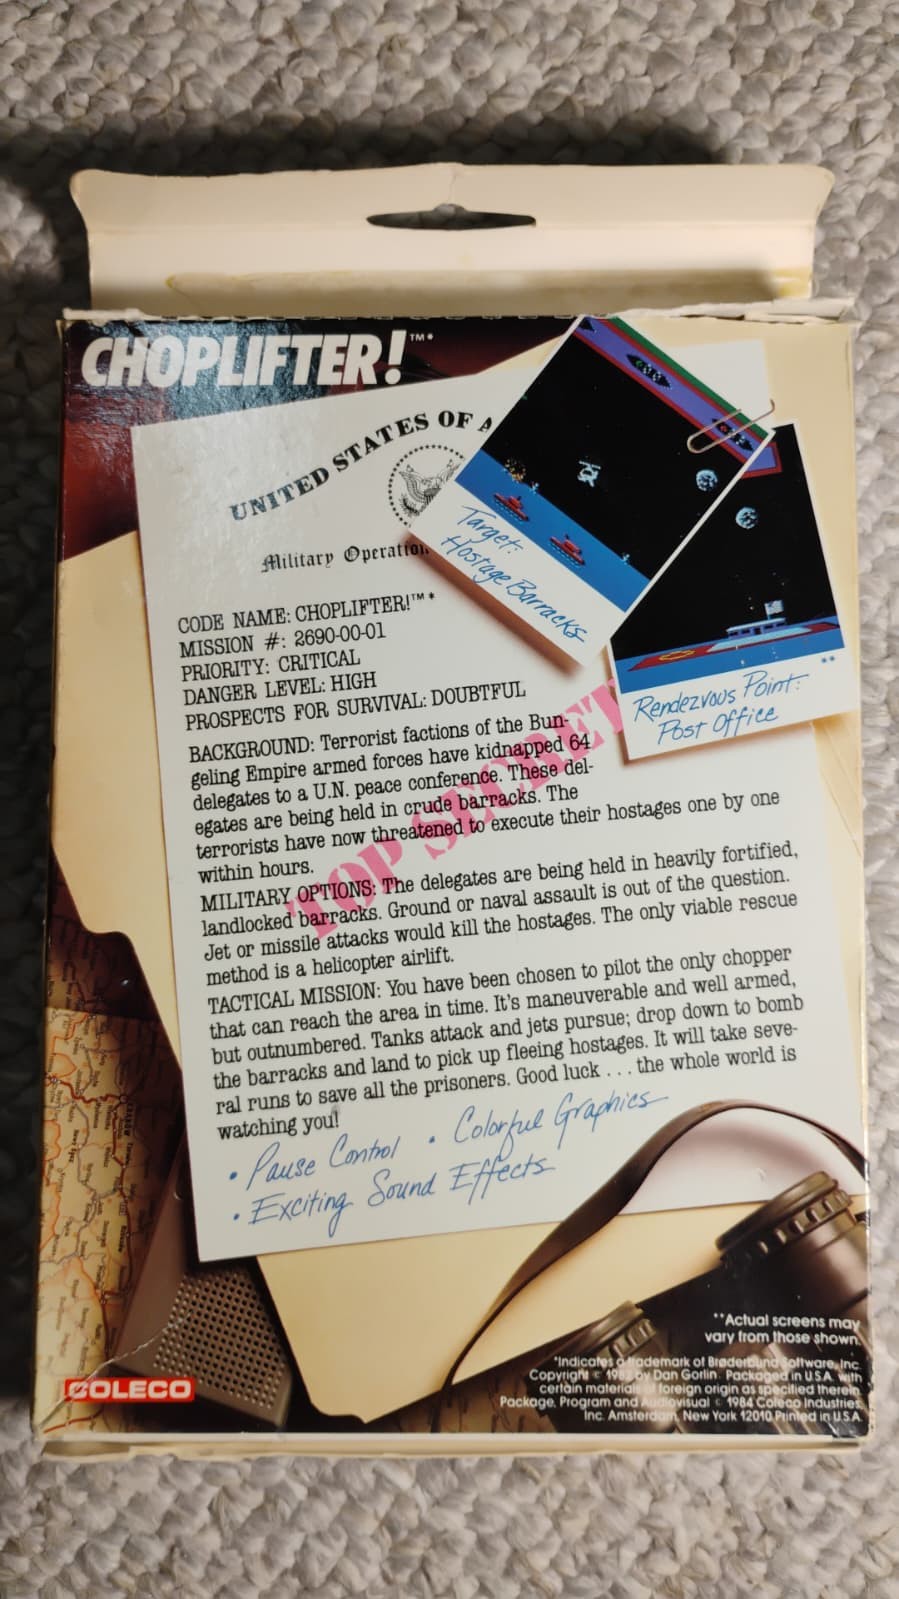 CHOPLIFTER!™*
UNITED STATES OF A
Military Operation
Target:
Hostage Barracks
**
Rendezvous Point:
Post Office
CODE NAME: CHOPLIFTER!™*
MISSION #: 2690-00-01
PRIORITY: CRITICAL
DANGER LEVEL: HIGH
PROSPECTS FOR SURVIVAL: DOUBTFUL
TOP SECRET
BACKGROUND: Terrorist factions of the Bun-
geling Empire armed forces have kidnapped 64
delegates to a U.N. peace conference. These del-
egates are being held in crude barracks. The
terrorists have now threatened to execute their hostages one by one
within hours.
MILITARY OPTIONS: The delegates are being held in heavily fortified,
landlocked barracks. Ground or naval assault is out of the question.
Jet or missile attacks would kill the hostages. The only viable rescue
method is a helicopter airlift.
TACTICAL MISSION: You have been chosen to pilot the only chopper
that can reach the area in time. It's maneuverable and well armed,
but outnumbered. Tanks attack and jets pursue; drop down to bomb
the barracks and land to pick up fleeing hostages. It will take seve-
ral runs to save all the prisoners. Good luck . . . the whole world is
watching you!
• Pause Control • Colorful Graphics
• Exciting Sound Effects
**Actual screens may
vary from those shown.
*Indicates a trademark of Brøderbund Software, Inc.
Copyright © 1982 by Dan Gorlin. Packaged in U.S.A. with
certain materials of foreign origin as specified therein.
Package, Program and Audiovisual © 1984 Coleco Industries,
Inc. Amsterdam, New York 12010 Printed in U.S.A.
COLECO